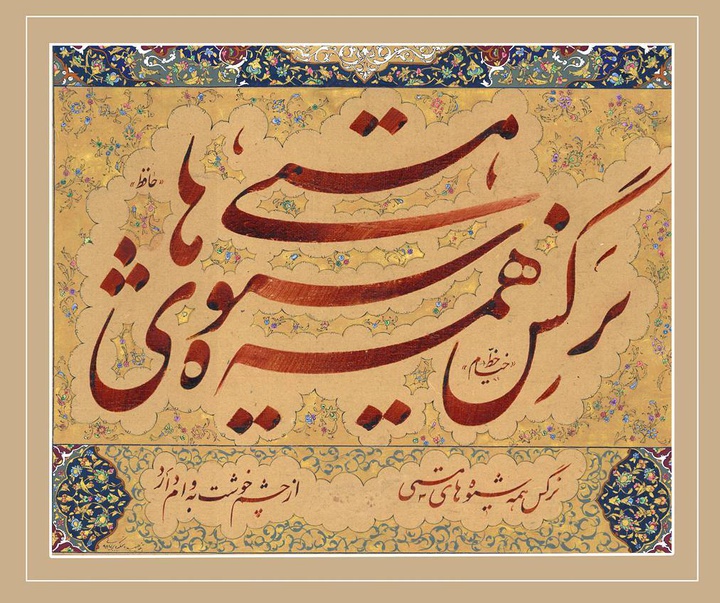 نرگس همه شیوه‌های مستی
«حافظ»
نرگس همه شیوه‌های مستی از چشم خوشت به وام دارد